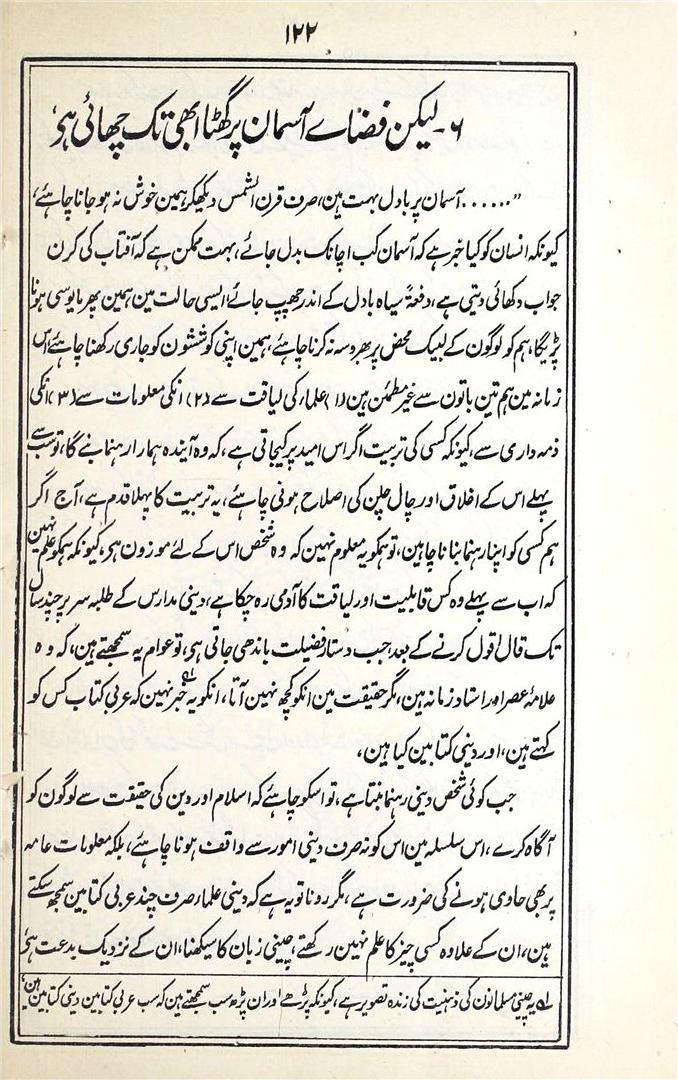 ۱۲۲
۶۔ لیکن فضاے آسمان پر گھٹا ابھی تک چھائی ہی
”......آسمان پر بادل بہت ہین، صرف قرن الشمس دیکھکر ہمین خوش نہ ہو جانا چاہئے،
کیونکہ انسان کو کیا خبر ہے کہ آسمان کب اچانک بدل جائے، بہت ممکن ہے کہ آفتاب کی کرن
جواب دکھائی دیتی ہے، دفعۃً سیاہ بادل کے اندر چھپ جائے، ایسی حالت مین ہمین پھر مایوسی ہونا
پڑیگا، ہم کو لوگون کے لبیک محض پر بھروسہ نہ کرنا چاہئے، ہمین اپنی کوششون کو جاری رکھنا چاہئے، اس
زمانہ مین ہم تین باتون سے غیر مطمئن ہین (۱) علماء کی لیاقت سے (۲) انکی معلومات سے (۳) انکی
ذمہ داری سے، کیونکہ کسی کی تربیت اگر اس امید پر کیجاتی ہے، کہ وہ آیندہ ہمارا رہنما بنے گا، تو سب سے
پہلے اس کے اخلاق اور چال چلن کی اصلاح ہونی چاہئے، یہ تربیت کا پہلا قدم ہے، آج اگر
ہم کسی کو اپنا رہنما بنانا چاہین، تو ہمکو یہ معلوم نہین کہ وہ شخص اس کے لئے موزون ہی، کیونکہ ہمکو علم نہین
کہ اب سے پہلے وہ کس قابلیت اور لیاقت کا آدمی رہ چکا ہے، دینی مدارس کے طلبہ سر پر چند سال
تک قال اقول کرنے کے بعد، جب دستار فضیلت باندھی جاتی ہی، تو عوام یہ سمجھتے ہین، کہ وہ
علامۂ عصر اور استاد زمانہ ہین، مگر حقیقت مین انکو کچھ نہین آتا، انکو یہ خبر نہین کہ عربی کتاب کس کو
کہتے ہین، اور دینی کتابین کیا ہین،
جب کوئی شخص دینی رہنما بنتا ہے، تو اسکو چاہئے کہ اسلام اور دین کی حقیقت سے لوگون کو
آگاہ کرے، اس سلسلہ مین اس کو نہ صرف دینی امور سے واقف ہونا چاہئے، بلکہ معلومات عامہ
پر بھی حاوی ہونے کی ضرورت ہے، مگر رونا تو یہ ہے کہ دینی علماء صرف چند عربی کتابین سمجھ سکتے
ہین، ان کے علاوہ کسی چیز کا علم نہین رکھتے، چینی زبان کا سیکھنا، ان کے نزدیک بدعت ہی
لہ یہ چینی مسلمانون کی ذہنیت کی زندہ تصویر ہے، کیونکہ پڑھے اور ان پڑھ سب سمجھتے ہین کہ سب عربی کتابین دینی کتابین ہین،